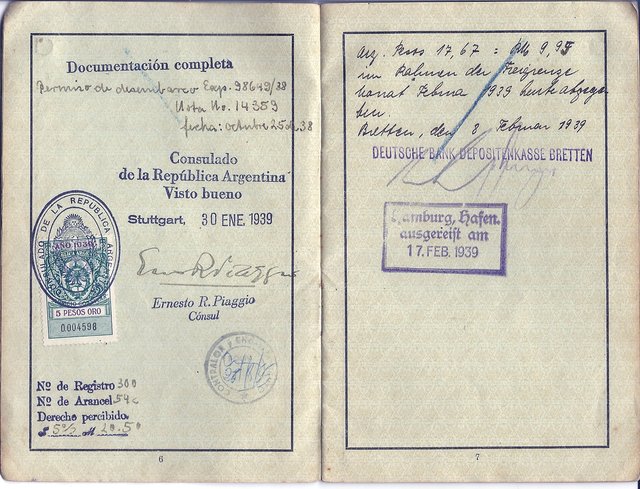 Documentación completa
Permiso de desembarco Exp. 98649/38
Nota No. 14359
fecha: octubre 25 de 38
Consulado
de la República Argentina
Visto bueno
Stuttgart, 30 ENE. 1939
CONSULADO DE LA REPUBLICA ARGENTINA
AÑO 1936
5 PESOS ORO
0004598
Ernesto R. Piaggio
Cónsul
CONTRALOR
Nº de Registro 300
Nº de Arancel 54c
Derecho percibido
$ 5 º/s M 20.50
6
arg. Pesos 17,67 = RM 9,95
im Rahmen der Freigrenze
Monat Februar 1939 heute abgege-
ben.
Bretten, den 8 Februar 1939
DEUTSCHE BANK DEPOSITENKASSE BRETTEN
Hamburg, Hafen.
ausgereist am
17. FEB. 1939
7